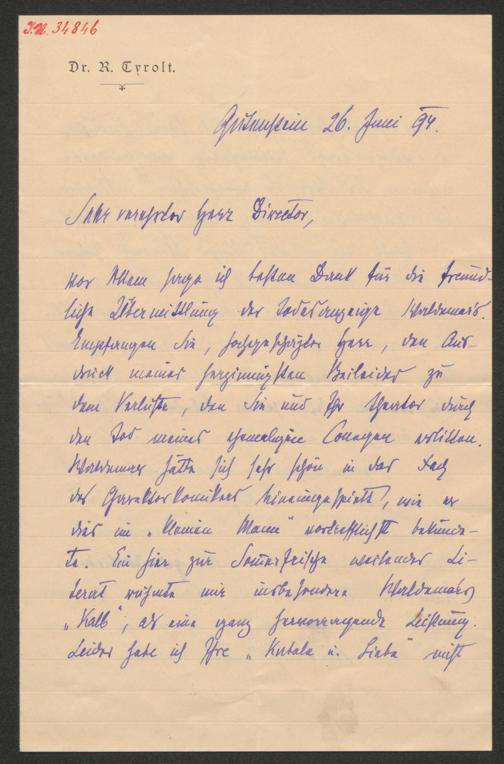 I.N. 34846
Dr. R. Tyrolt.
Gutenstein 26. Juni 94.
Sehr verehrter Herr Director,
vor Allem sage ich besten Dank für die freund-
liche Übermittlung der Todesanzeige Waldemars.
Empfangen Sie, hochgeschätzter Herr, den Aus-
druck meines herzinnigsten Beileides zu
dem Verluste, den Sie und Ihr Theater durch
den Tod meines ehemaligen Collegen erlitten.
Waldemar hätte sich sehr schön in das Fach
des Charakterkomikers hineingespielt, wie er
dies im „kleinen Mann" vortrefflichst bekunde-
te. Ein hier zur Sommerfrische weilender Li-
terat rühmte mir insbesondere Waldemars
„Kalb", als eine ganz hervorragende Leistung.
Leider habe ich Ihre „Kabale u. Liebe" nicht